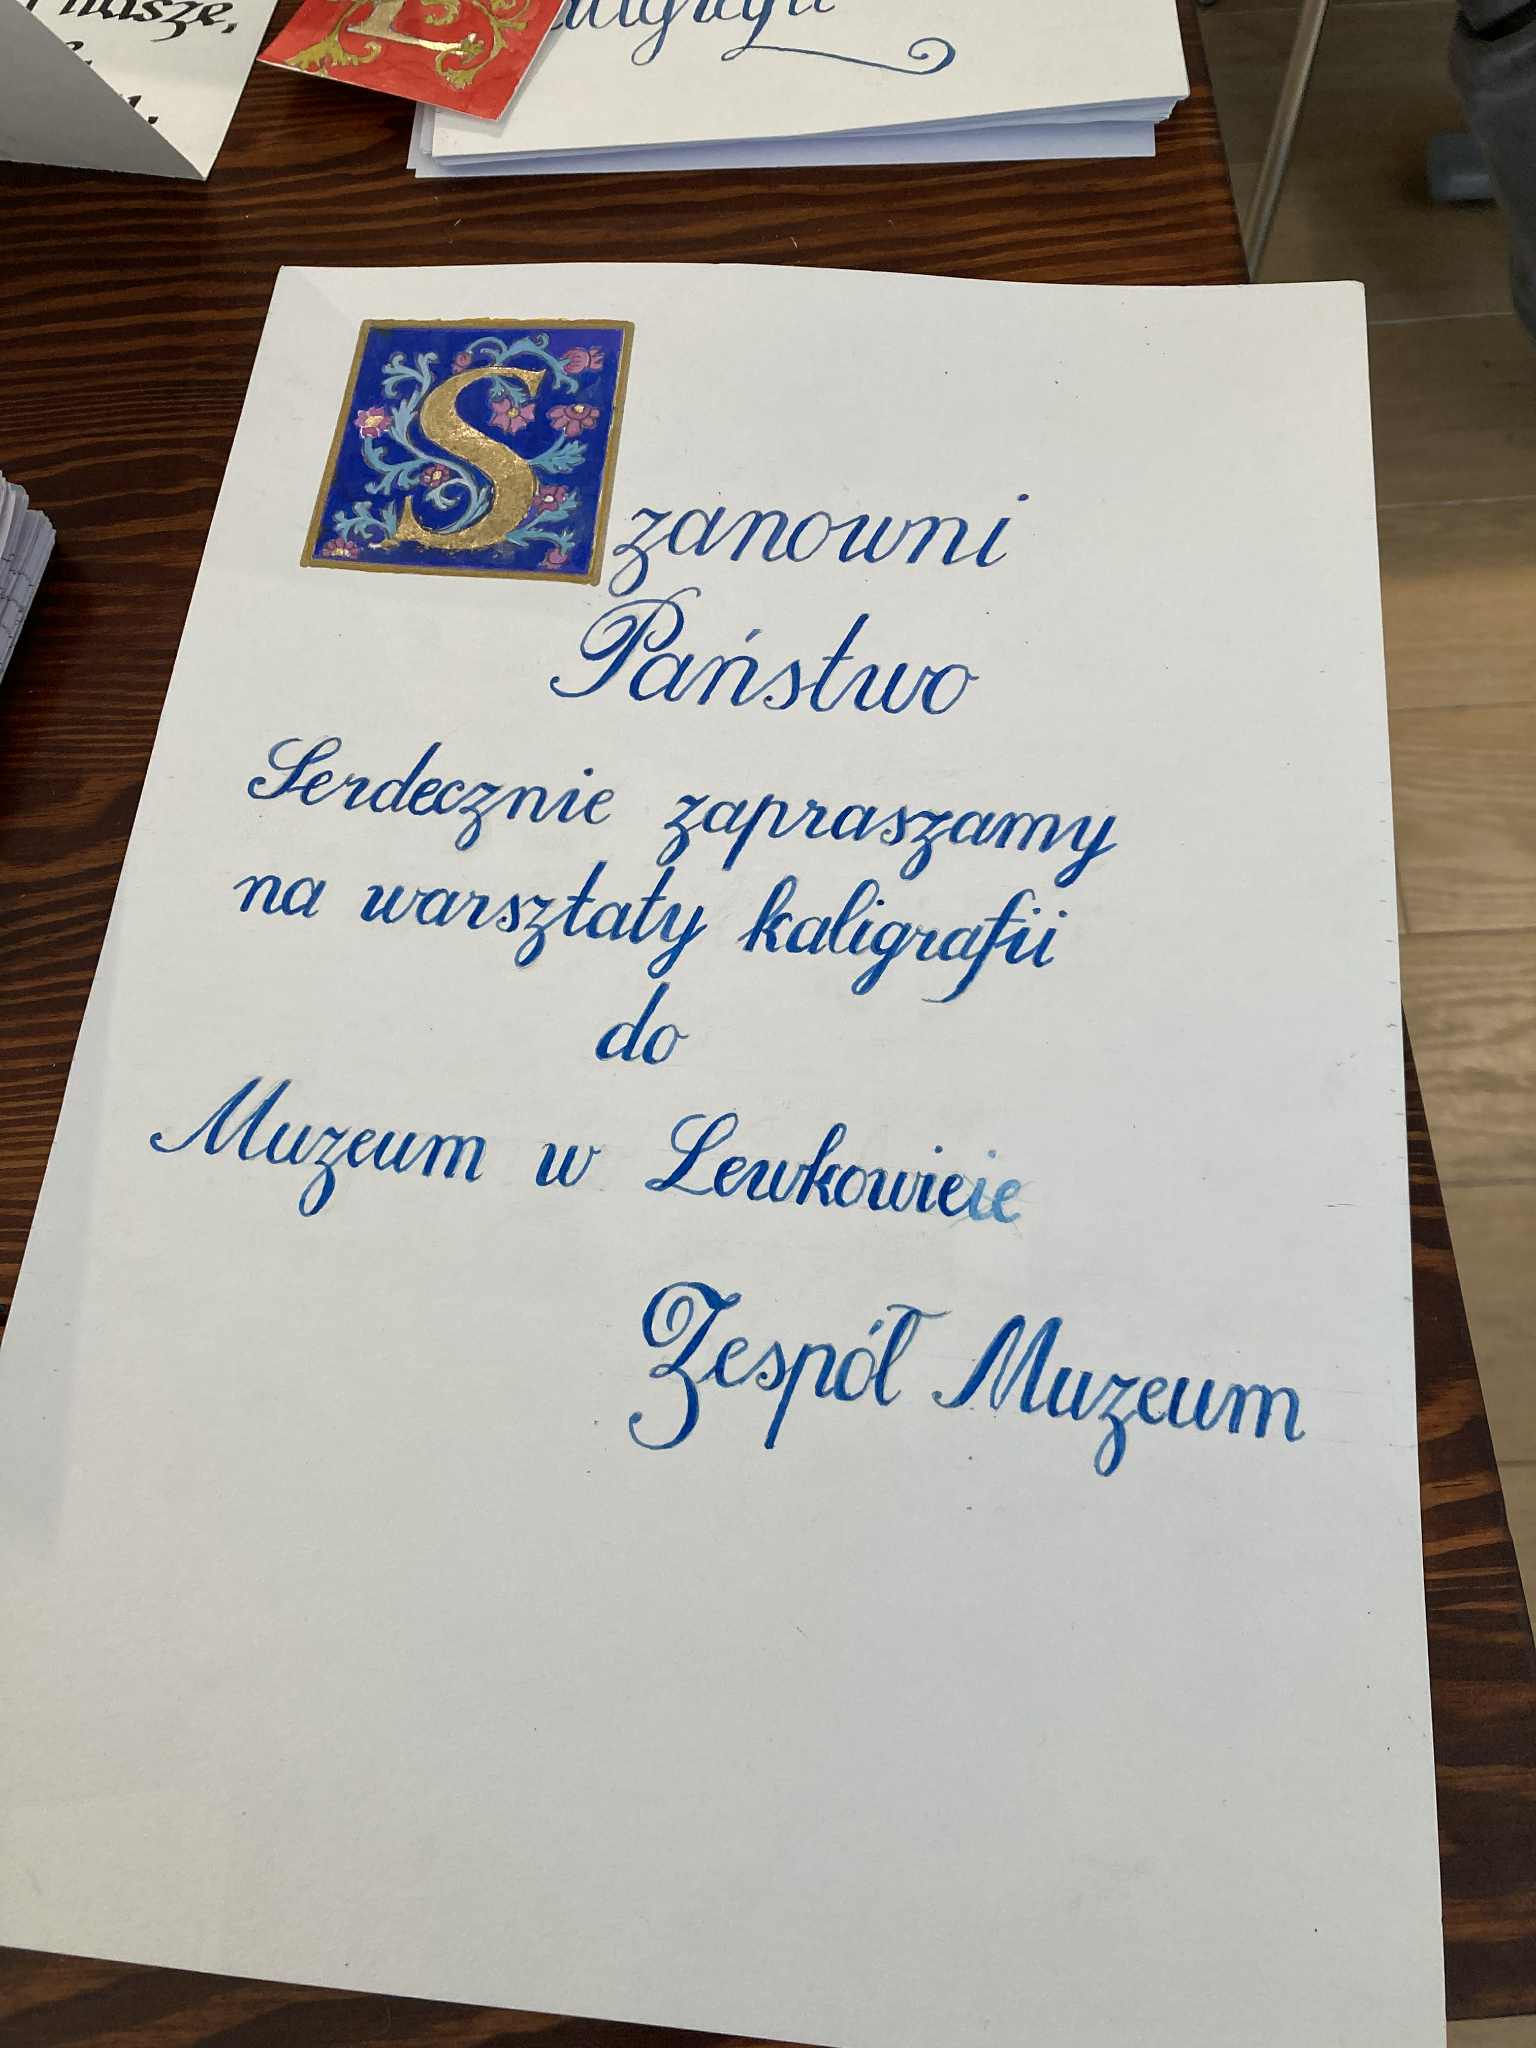 nasze,
kaligrafii
Szanowni
Państwo
Serdecznie zapraszamy
na warsztaty kaligrafii
do
Muzeum w Lewkowicie
Zespół Muzeum